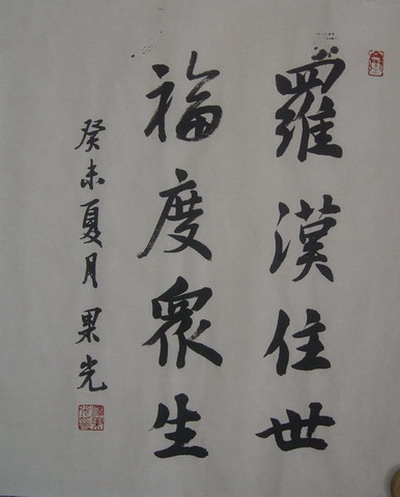 羅漢住世
福度眾生
癸未夏月果光